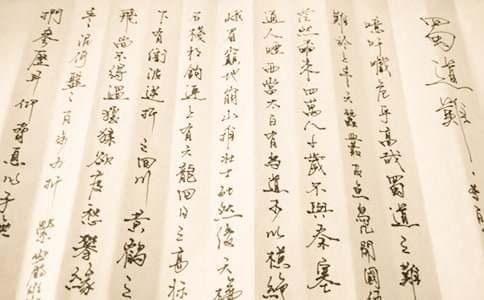 蜀道難
噫吁嚱危乎高哉蜀道之難
難於上青天蠶叢及魚鳧開國
茫然爾來四萬八千歲不與秦塞
通人煙西當太白有鳥道可以橫絕
峨眉巔地崩山摧壯士死然後天梯
石棧相鉤連上有六龍回日之高標
下有衝波逆折之回川黃鶴之
飛尚不得過猿猱欲度愁攀緣
青泥何盤盤百步九折縈巖巒
捫參歷井仰脅息以手